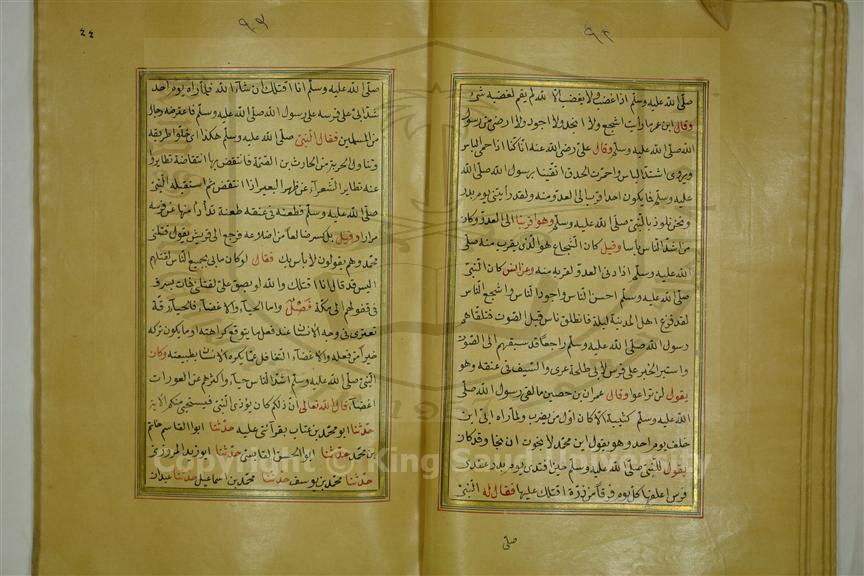 صلى الله عليه وسلم اذا غضب ولا يغضب الا لله لم يقم لغضبه شئ
وقال ابن عمر ما رأيت اشجع ولا انجد ولا اجود ولا ارضى من رسول
الله صلى الله عليه وسلم وقال على رضى الله عنه انا كنا اذا حمى الباس
ويروى اشتد الباس واحمرت الحدق اتقينا برسول الله صلى الله
عليه وسلم فما يكون احد اقرب الى العدو منه ولقد رأيتنى يوم بدر
ونحن نلوذ بالنبى صلى الله عليه وسلم وهو اقربنا الى العدو وكان
من اشد الناس باسا وقيل كان الشجاع هو الذى يقرب منه صلى
الله عليه وسلم اذا دنى العدو لقربه منه وعن انس كان النبى
صلى الله عليه وسلم احسن الناس واجود الناس واشجع الناس
لقد فزع اهل المدينة ليلة فانطلق ناس قبل الصوت فتلقاهم
رسول الله صلى الله عليه وسلم راجعا قد سبقهم الى الصوت
واستبرا الخبر على فرس لابى طلحة عرى والسيف فى عنقه وهو
يقول لن تراعوا وقال عمران بن حصين ما لقى رسول الله صلى
الله عليه وسلم كتيبة الا كان اول من يضرب ولما راه ابى ابن
خلف يوم احد وهو يقول اين محمد لا نجوت ان نجا وقد كان
يقول للنبى صلى الله عليه وسلم حين افتدى يوم بدر عندى
فرس اعلفها كل يوم فرقا من ذرة اقتلك عليها فقال له النبى
صلى
٤٤
صلى الله عليه وسلم انا اقتلك ان شاء الله فلما راه يوم احد
شد ابى على فرسه على رسول الله صلى الله عليه وسلم فاعترضه رجال
من المسلمين فقال النبى صلى الله عليه وسلم هكذا اى خلوا طريقه
وتناول الحربة من الحارث بن الصمة فانتفض بها انتفاضة تطايروا
عنه تطاير الشعراء عن ظهر البعير اذا انتفض ثم استقبله النبى
صلى الله عليه وسلم فطعنه فى عنقه طعنة تدأدأ منها عن فرسه
مرارا وقيل بل كسر ضلعا من اضلاعه فرجع الى قريش يقول قتلنى
محمد وهم يقولون لا باس بك فقال لو كان ما بى بجميع الناس لقتلهم
اليس قد قال انا اقتلك والله لو بصق على لقتلنى فمات بسرف
فى قفولهم الى مكة فصل واما الحياء والاغضاء فالحياء رقة
تعترى فى وجه الانسان عند فعل ما يتوقع كراهته او ما يكون تركه
خيرا من فعله والاغضاء التغافل عما يكره الانسان بطبيعته وكان
النبى صلى الله عليه وسلم اشد الناس حياء واكثرهم عن العورات
اغضاء قال الله تعالى ان ذلكم كان يؤذى النبى فيستحيى منكم الاية
حدثنا ابو محمد بن عتاب بقرائتى عليه حدثنا ابو القاسم حاتم
بن محمد حدثنا ابو الحسن القابسى حدثنا ابو زيد المروزى
حدثنا محمد بن يوسف حدثنا محمد بن اسماعيل حدثنا عبدان
Copyright © King Saud University